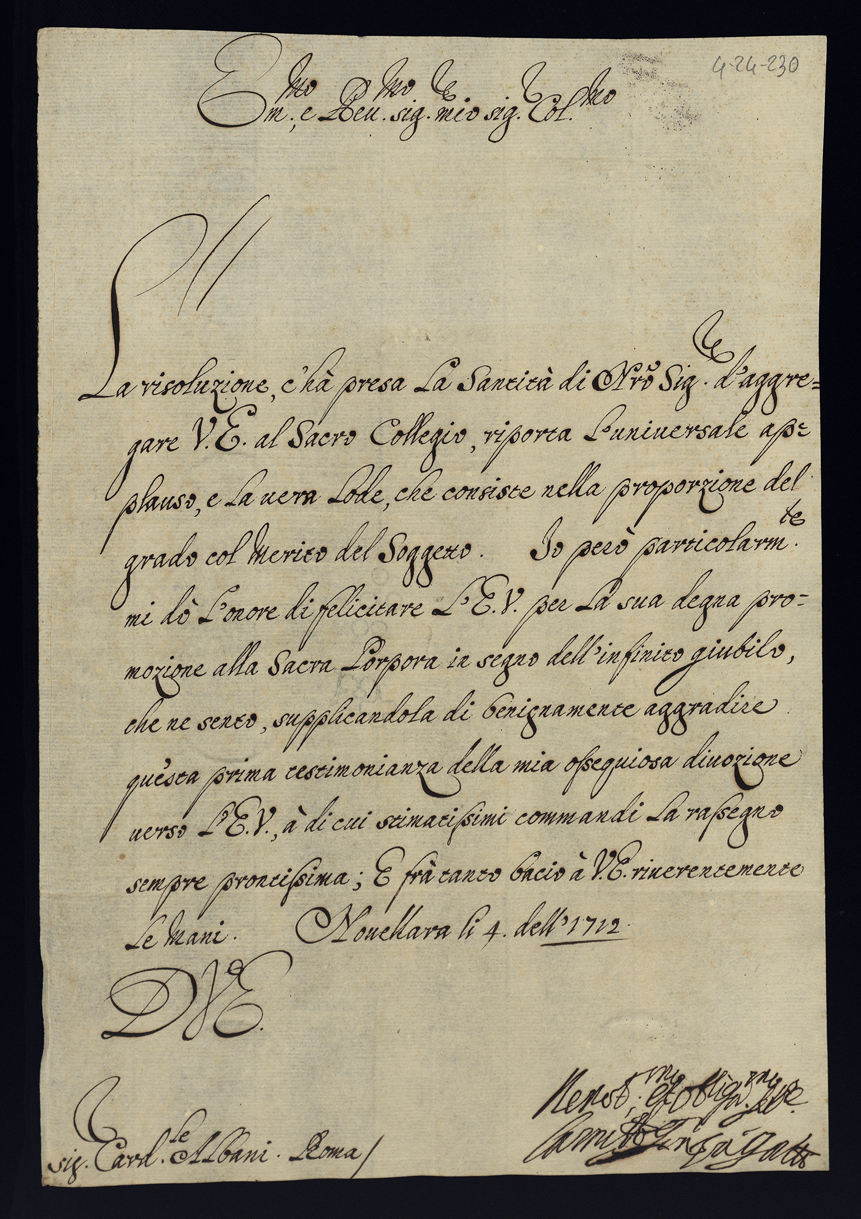 4-24-230
Em.mo, e Reu.mo sig.re mio sig.re Col.mo
La risoluzione, c'hà presa La Santità di Nrõ Sig.re d'aggre=
gare V.E. al Sacro Collegio, riporta L'uniuersale ap=
plauso, e La uera Lode, che consiste nella proporzione del
grado col Merito del Soggetto. Io però particolarm.te
mi dò L'onore di felicitare L'E.V. per La sua degna pro=
mozione alla Sacra Porpora in segno dell'infinito giubilo,
che ne sento, supplicandola di benignamente aggradire
questa prima testimonianza della mia ossequiosa diuozione
uerso L'E.V., à di cui stimatissimi commandi La rassegno
sempre prontissima; E frà tanto bacio à V.E. riuerentemente
Le Mani. Nouellara li 4. dell' 1712.
D V E.
sig.r Card.le Albani. Roma/